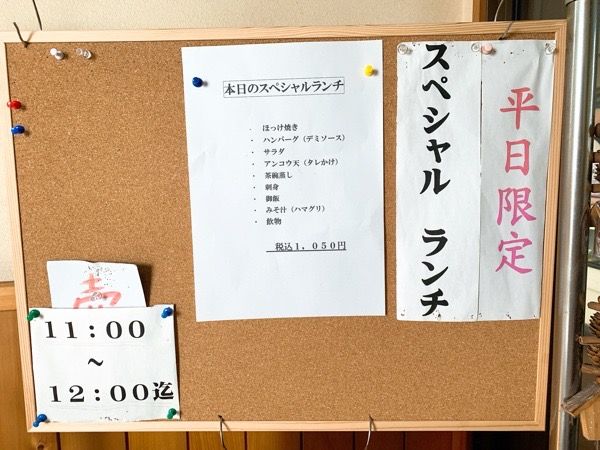 本日のスペシャルランチ
・ ほっけ焼き
・ ハンバーグ（デミソース）
・ サラダ
・ アンコウ天（タレかけ）
・ 茶碗蒸し
・ 刺身
・ 御飯
・ みそ汁（ハマグリ）
・ 飲物
税込１，０５０円
平日限定
スペシャル ランチ
１１：００
～
１２：００迄